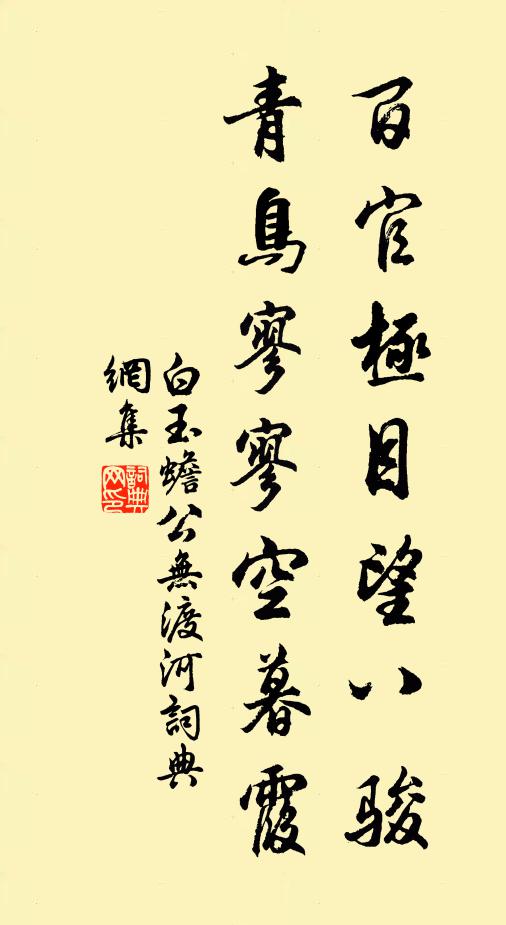 百官極目望八骏
青鳥寥寥空暮霞
白玉蟾公無渡河詞典
網集
詞典
网印